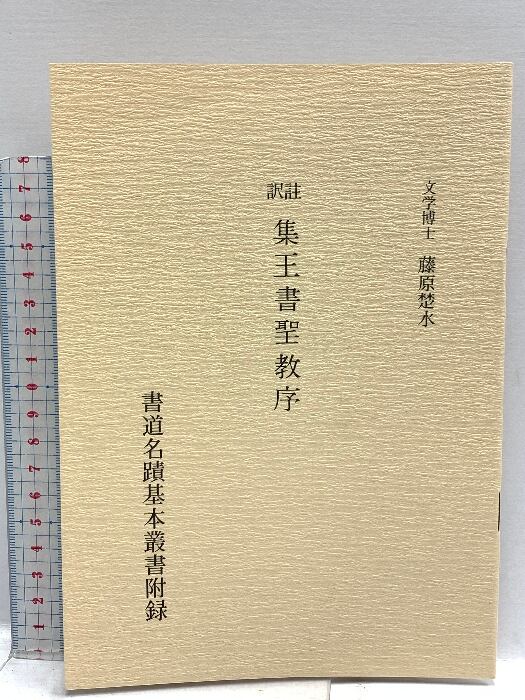 文学博士 藤原楚水
訳註 集王書聖教序
書道名蹟基本叢書附録
8
7
6
5
4
3
2
1
0
9
8
7
6
5
4
3
2
1